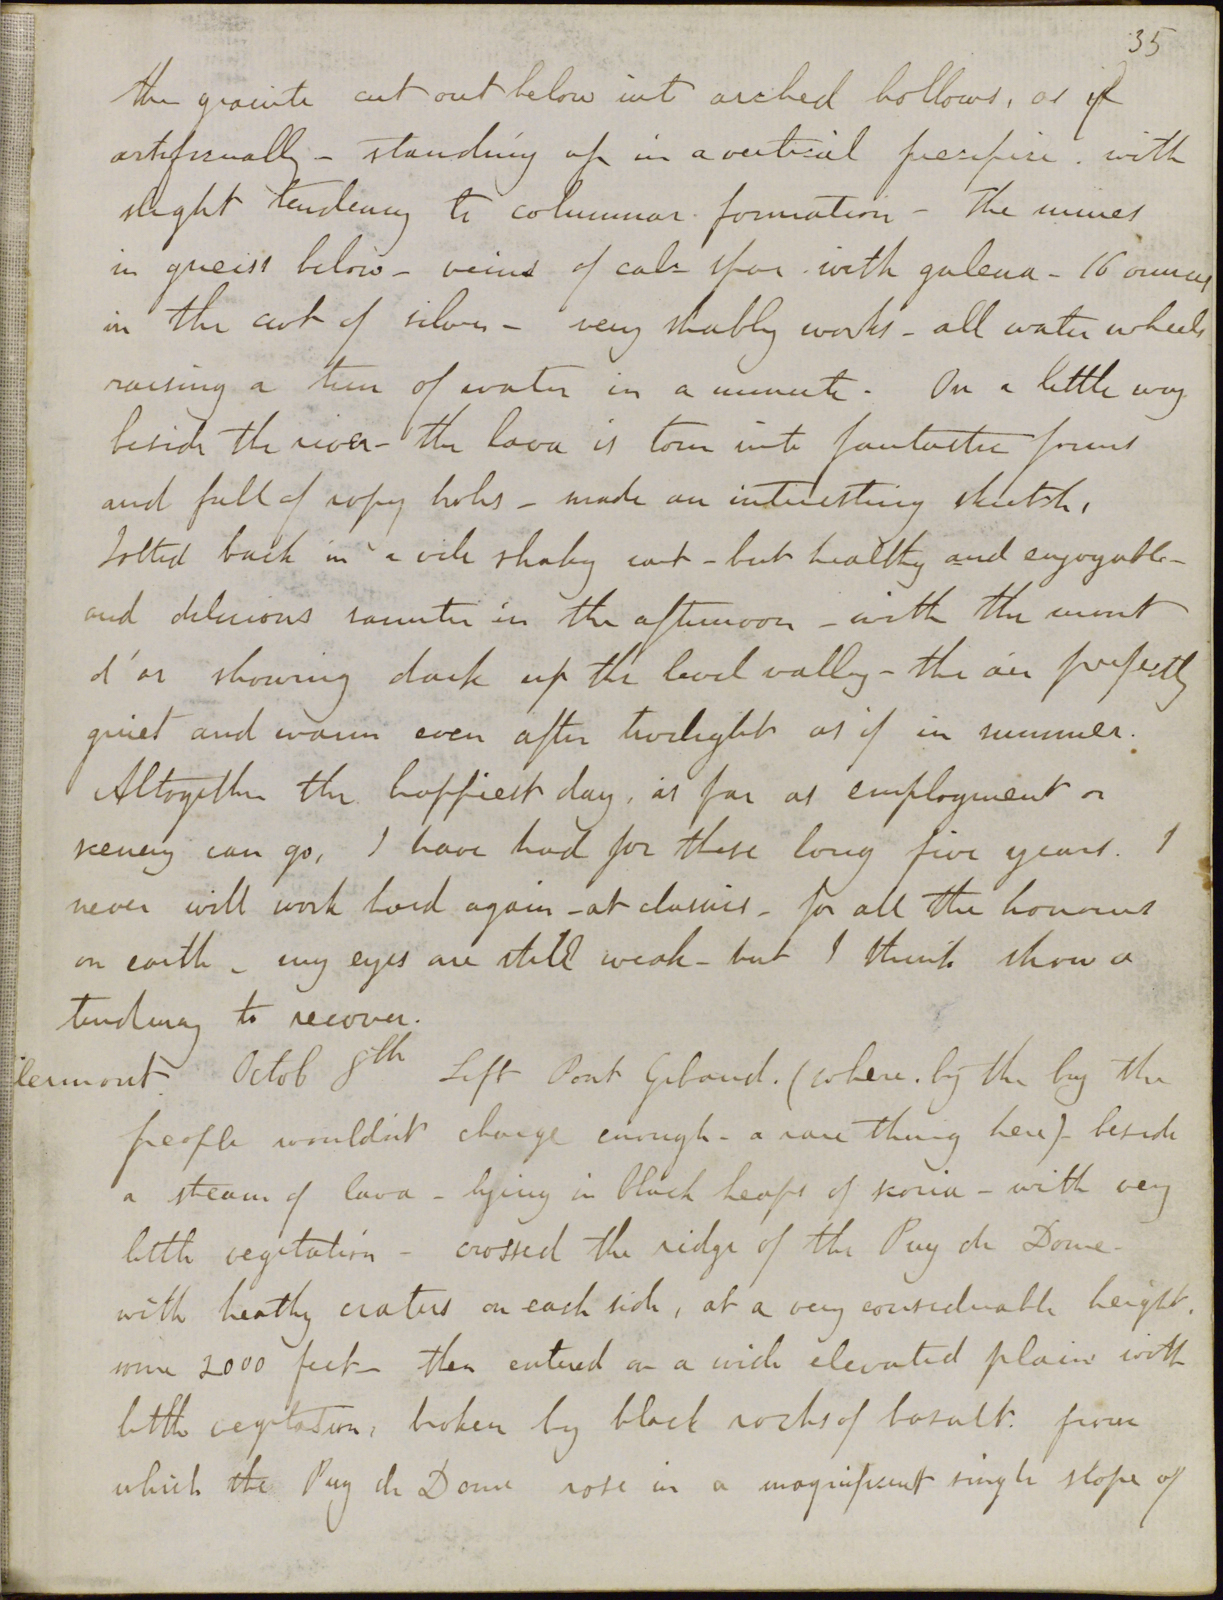 35
the granite cut out below into arched hollows, as if
artificially - standing up in a vertical precipice. with
slight tendency to columnar formation - The mines
in gneiss below - veins of calc spar with galena - 16 ounces
in the cwt of silver - very shabby works - all water wheels
raising a tun of water in a minute. On a little way
beside the river - the lava is torn into fantastic forms
and full of ropy holes - made an interesting sketch,
Jolted back in a vile shaky cart - but healthy and enjoyable -
and delicious saunter in the afternoon - with the mont
d'or showing dark up the level valley - the air perfectly
quiet and warm even after twilight as if in summer.
Altogether the happiest day, as far as employment or
scenery can go, I have had for these long five years. I
never will work hard again - at classics - for all the honours
on earth - my eyes are still weak - but I think show a
tendency to recover.
Clermont. Octob 8th Left Pont Gibaud. (where. by the by the
people wouldn't charge enough - a rare thing here) - beside
a steam of lava - lying in black heaps of scoria - with very
little vegetation - crossed the ridge of the Puy de Dome -
with heathy craters on each side, at a very considerable height.
some 2000 feet - then entered on a wide elevated plain with
little vegetation, broken by black rocks of basalt. from
which the Puy de Dome rose in a magnificent single slope of